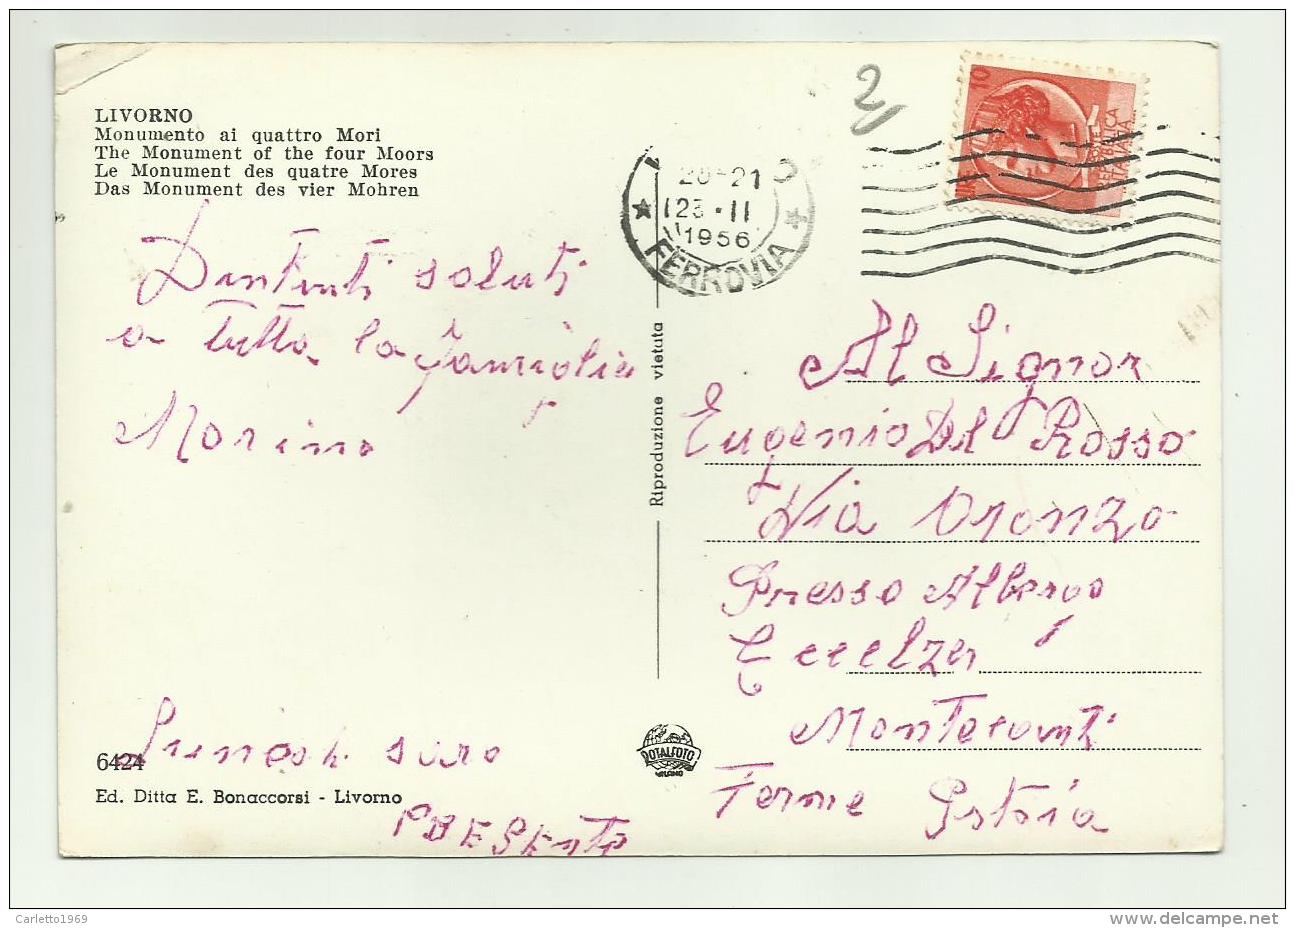 LIVORNO
Monumento ai quattro Mori
The Monument of the four Moors
Le Monument des quatre Mores
Das Monument des vier Mohren
2
20-21
23·II
1956
FERROVIA
10
REPUBBLICA
ITALIANA
saluti
a tutta la famiglia
Marino
sara
PRESEnte
6424
Ed. Ditta E. Bonaccorsi - Livorno
Riproduzione vietuta
ROTALFOTO
MILANO
Al Signor
Eugenio Del Rosso
Via Oronzo
Presso Albergo
Montecati
Terme Pstoia
Carletto1969
delcampe.net